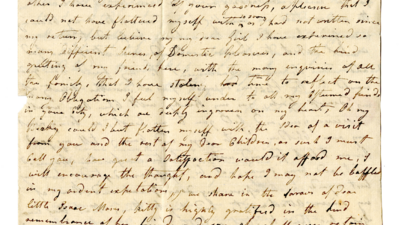 when I have experienced of your goodness, a pleasure that I
could not have flattered myself with, as I had not written since
my return, but believe me my dear Girl I have experienced so
many different scenes, of Domestic pleasures, and the kind
greeting of my friends here, with the many enquiries of all
the family, that I have stolen, time to reflect on the
many Obligations I feel myself under to all my Esteemed friends
in your City, which are deeply ingraven on my heart, Oh my
could I but flatten myself with the Idea of a visit
from you and the rest of my dear Children, as such I must
call you, how great a Satisfaction would it afford me, I
will encourage the thought, and hope I may not be baffled
in my ardent expectation, share in the favors of dear
little Isaac, Mama, kitty is highly gratified in the kind
remembrance of her